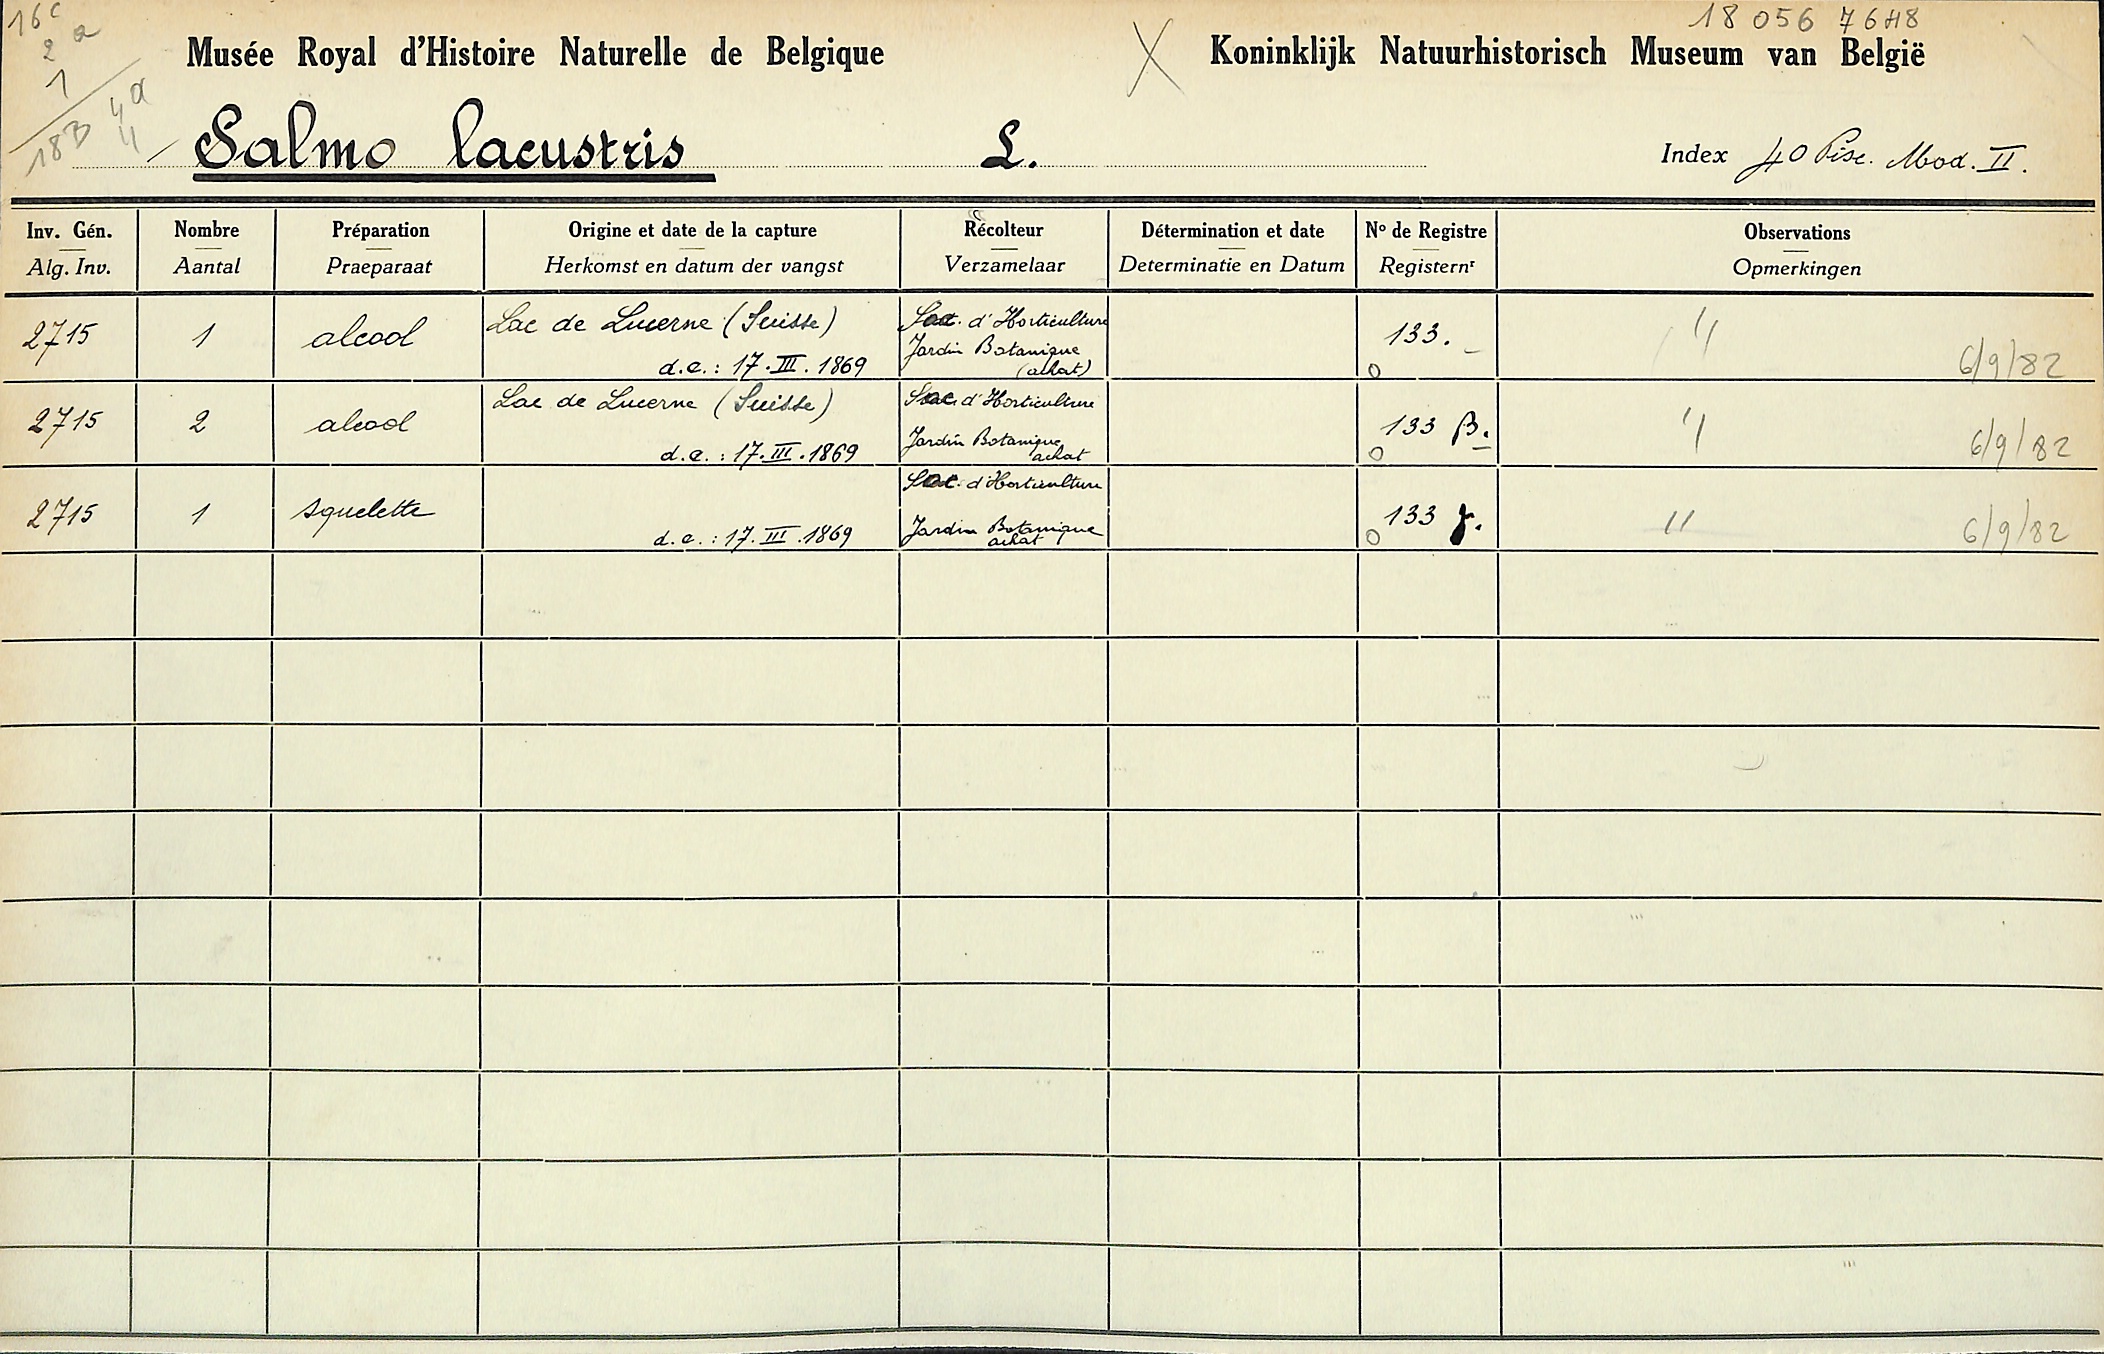 16c
2 a
1
18B 4a
4
18 056 7648
Musée Royal d'Histoire Naturelle de Belgique X Koninklijk Natuurhistorisch Museum van België
Salmo lacustris L. Index 40 Pisc. Mod. II.
Inv. Gén. Nombre Préparation Origine et date de la capture Récolteur Détermination et date No de Registre Observations
Alg. Inv. Aantal Praeparaat Herkomst en datum der vangst Verzamelaar Determinatie en Datum Registernr Opmerkingen
2715 1 alcool Lac de Lucerne (Suisse) Soc. d'Horticulture 133. "
d.e.: 17.III.1869 Jardin Botanique
(achat) 0 6/9/82
2715 2 alcool Lac de Lucerne (Suisse) Soc. d'Horticulture 133 β. "
d.e.: 17.III.1869 Jardin Botanique
achat 0 6/9/82
2715 1 squelette Soc. d'Horticulture 133 γ. "
d.e.: 17.III.1869 Jardin Botanique
achat 0 6/9/82